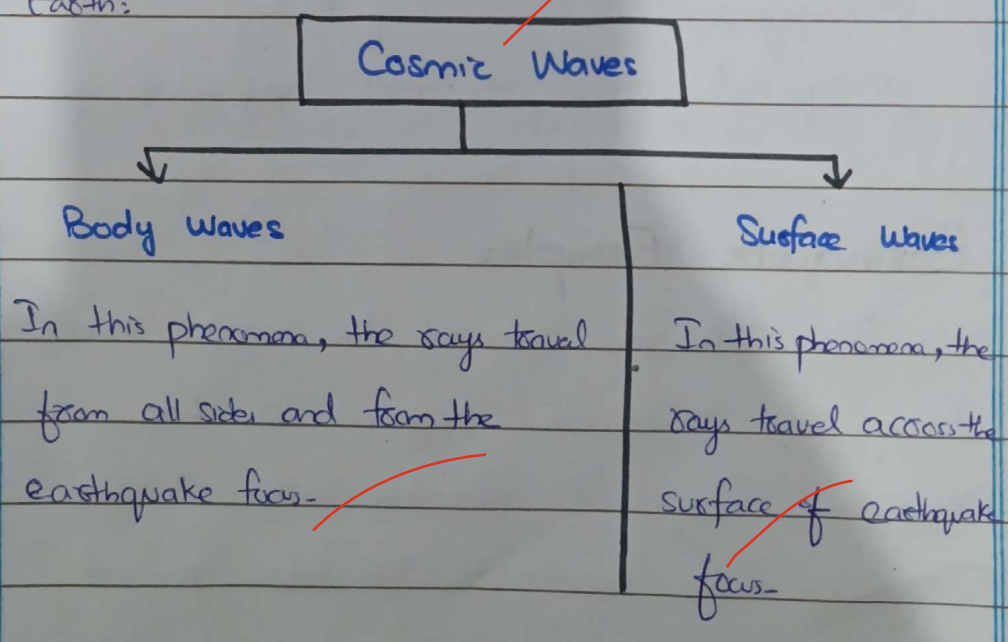 Earth:
Cosmic Waves
Body Waves
In this phenomena, the rays travel
from all sides and form the
earthquake focus-
Surface Waves
In this phenomena, the
rays travel across the
surface of earthquake
focus-